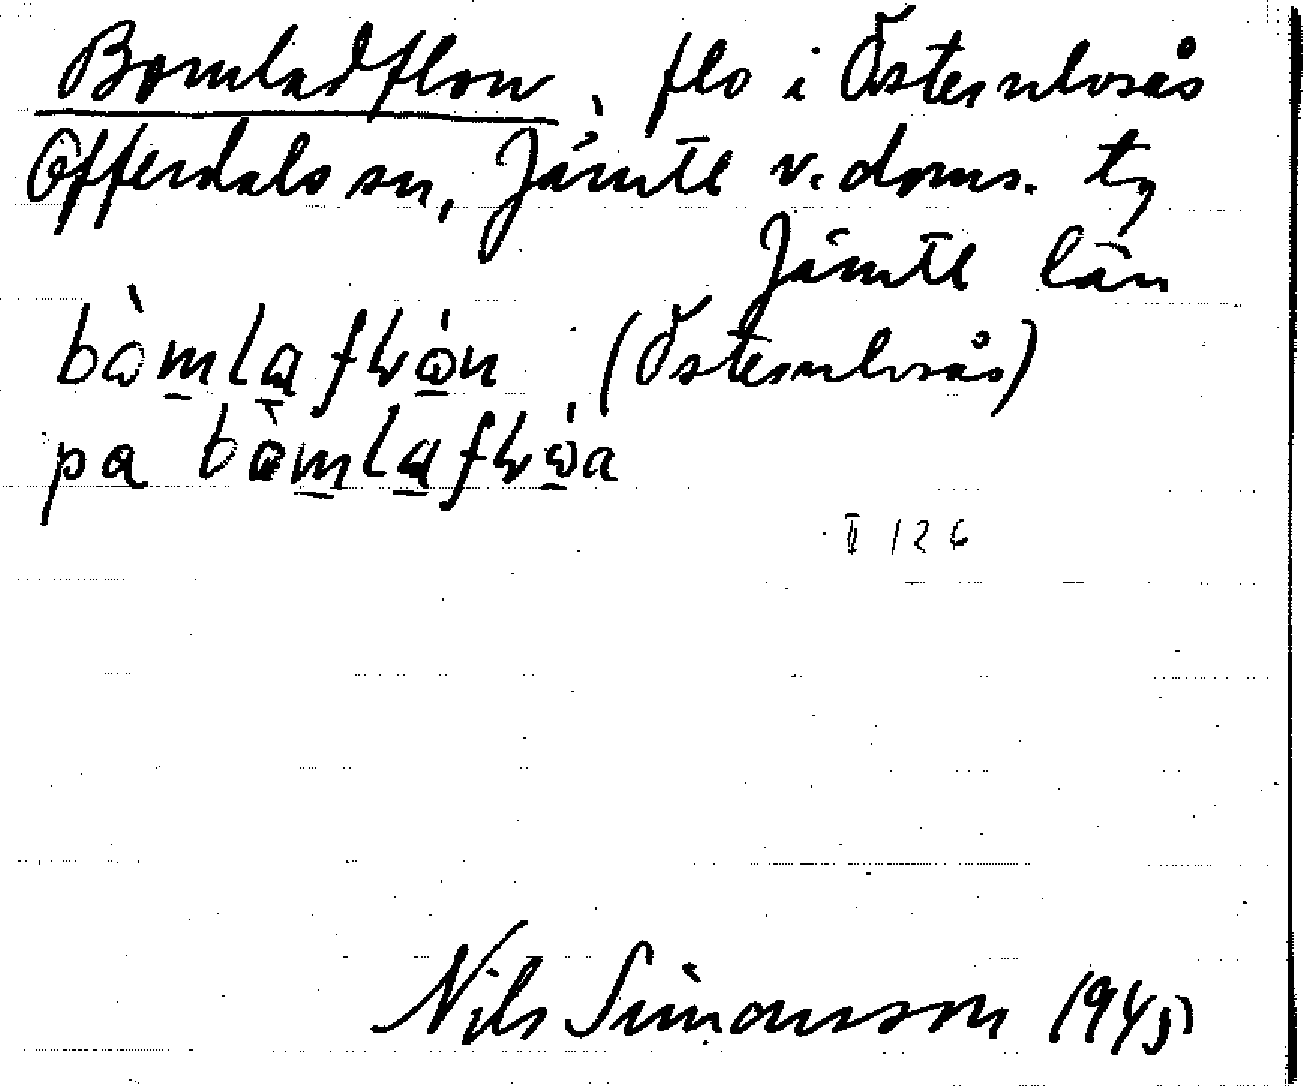 Bomladflon, flo i Östernlvsås
Offerdals sn, Jämtl v. doms. tg
Jämtl län
bòmlaflωn (Östernlvsås)
pa bòmlaflωa
II 126
Nils Simonsson 1945